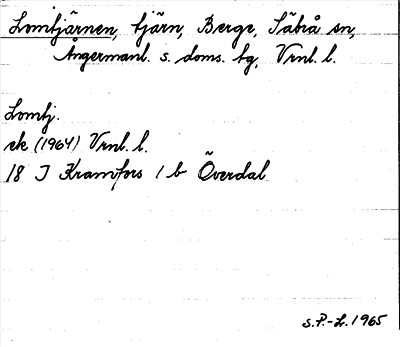 Lomtjärnen, tjärn, Berge, Säbrå sn,
Ångermanl. s. doms. tg, Vrnl. l.
Lomtj.
ek (1964) Vrnl. l.
18 I Kramfors 1 b Överdal
S.P.-L. 1965